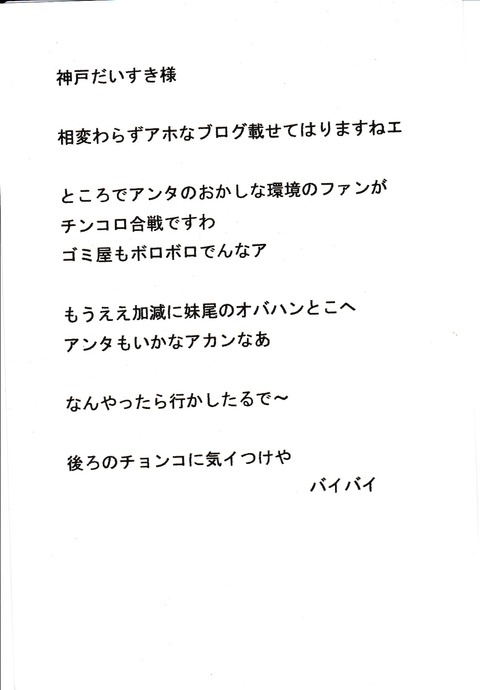 神戸だいすき様
相変わらずアホなブログ載せてはりますねエ
ところでアンタのおかしな環境のファンが
チンコロ合戦ですわ
ゴミ屋もボロボロでんなア
もうええ加減に妹尾のオバハンとこへ
アンタもいかなアカンなあ
なんやったら行かしたるで～
後ろのチョンコに気イつけや
バイバイ